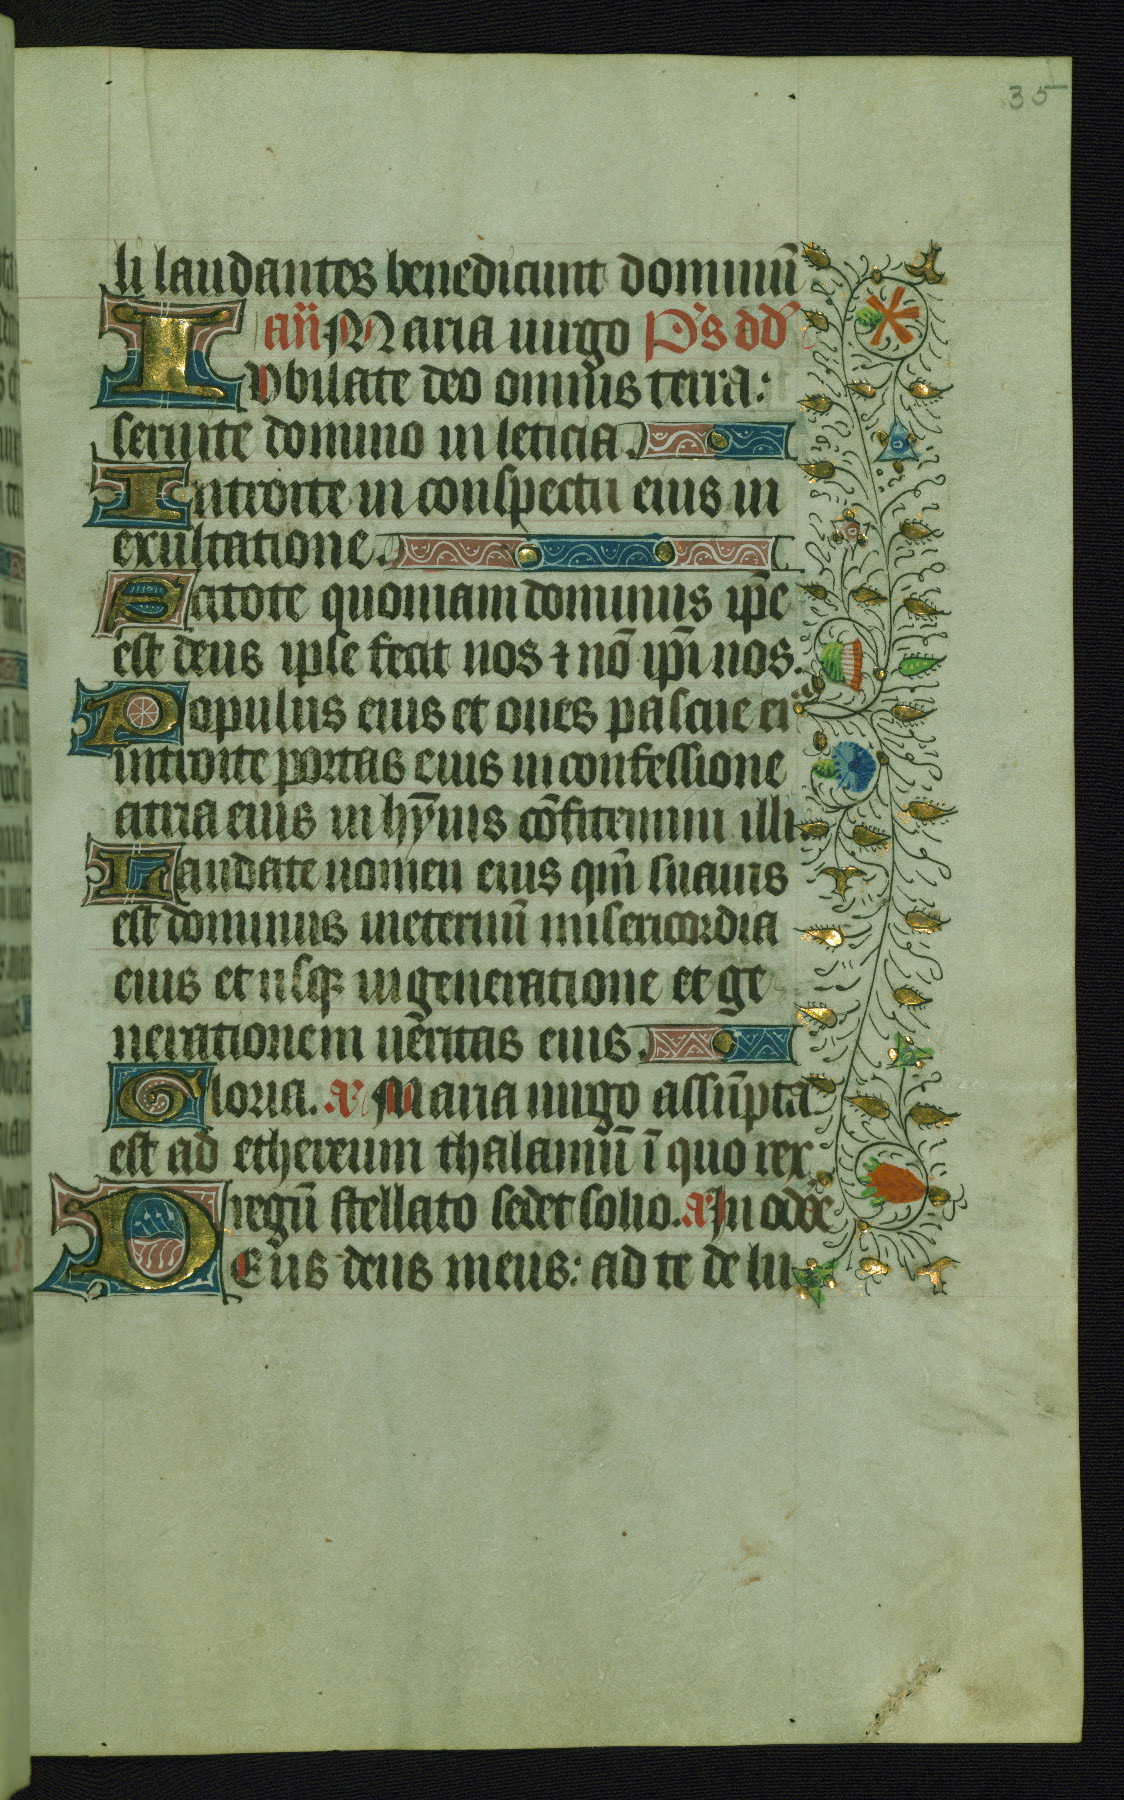 35
li laudantes benedicunt dominū
añ Maria uirgo Ps dd
IUbilate deo omnis terra:
seruite domino in leticia.
Introite in conspectu eius in
exultatione.
Scitote quoniam dominus ip̄e
est deus ipse fecit nos ⁊ nō ip̄i nos.
Populus eius et oues pascue ei⁹
introite portas eius in confessione
atria eius in hȳnis cōfitemini illi.
Laudate nomen eius qm̄ suauis
est dominus in eternū misericordia
eius et usqꝫ in generatione et ge
nerationem ueritas eius.
Gloria. a Maria uirgo assūpta
est ad ethereum thalamū ī quo rex
regū stellato sedet solio. a In odoꝛe
DEus deus meus: ad te de lu